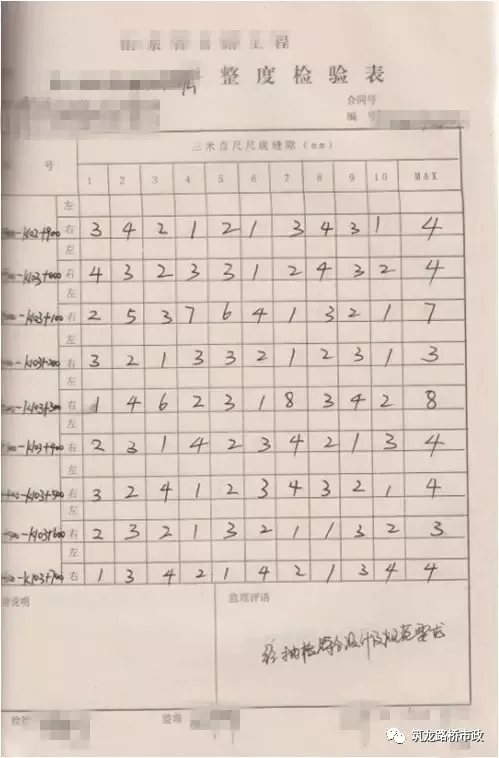 整度检验表
合同号
编号
号 三米直尺尺底缝隙(mm)
1 2 3 4 5 6 7 8 9 10 MAX
左
-K102+900 右 3 4 2 1 2 1 3 4 3 1 4
左
-K103+000 右 4 3 2 3 3 1 2 4 3 2 4
左
-K103+100 右 2 5 3 7 6 4 1 3 2 1 7
左
-K103+200 右 3 2 1 3 3 2 1 2 3 1 3
左
-K103+300 右 1 4 6 2 3 1 8 3 4 2 8
左
-K103+400 右 2 3 1 4 2 3 4 2 1 3 4
左
-K103+500 右 3 2 4 1 2 3 4 3 2 1 4
左
-K103+600 右 2 3 2 1 3 2 1 1 3 2 3
左
-K103+700 右 1 3 4 2 1 4 2 1 3 4 4
说明 监理评语
经抽检符合设计及规范要求
监理
筑龙路桥市政